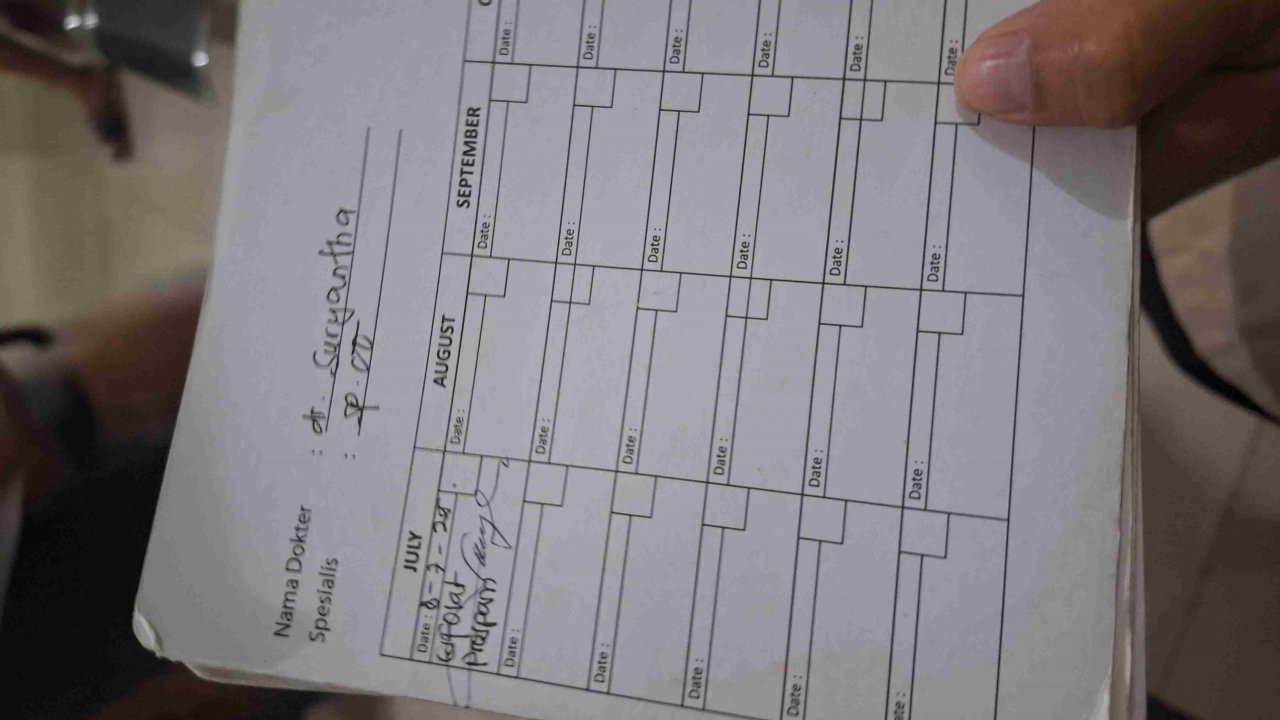 Nama Dokter : dr. Suryantha
Spesialis : Sp. OT
JULY AUGUST SEPTEMBER
Date : 8-7-25. Date : Date : Date :
Prospan
Date : Date : Date : Date :
Date : Date : Date : Date :
Date : Date : Date : Date :
Date : Date : Date : Date :
ate : Date : Date : Date :